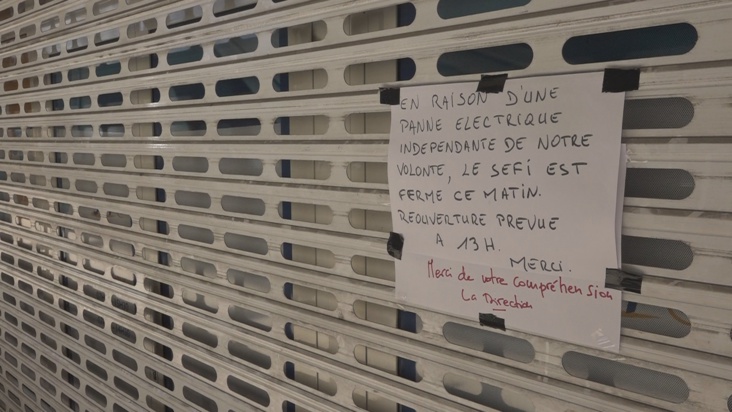 EN RAISON D'UNE
PANNE ELECTRIQUE
INDEPENDANTE DE NOTRE
VOLONTE, LE SEFI EST
FERME CE MATIN.
REOUVERTURE PREVUE
A 13H.
MERCI.
Merci de votre compréhension
La Direction